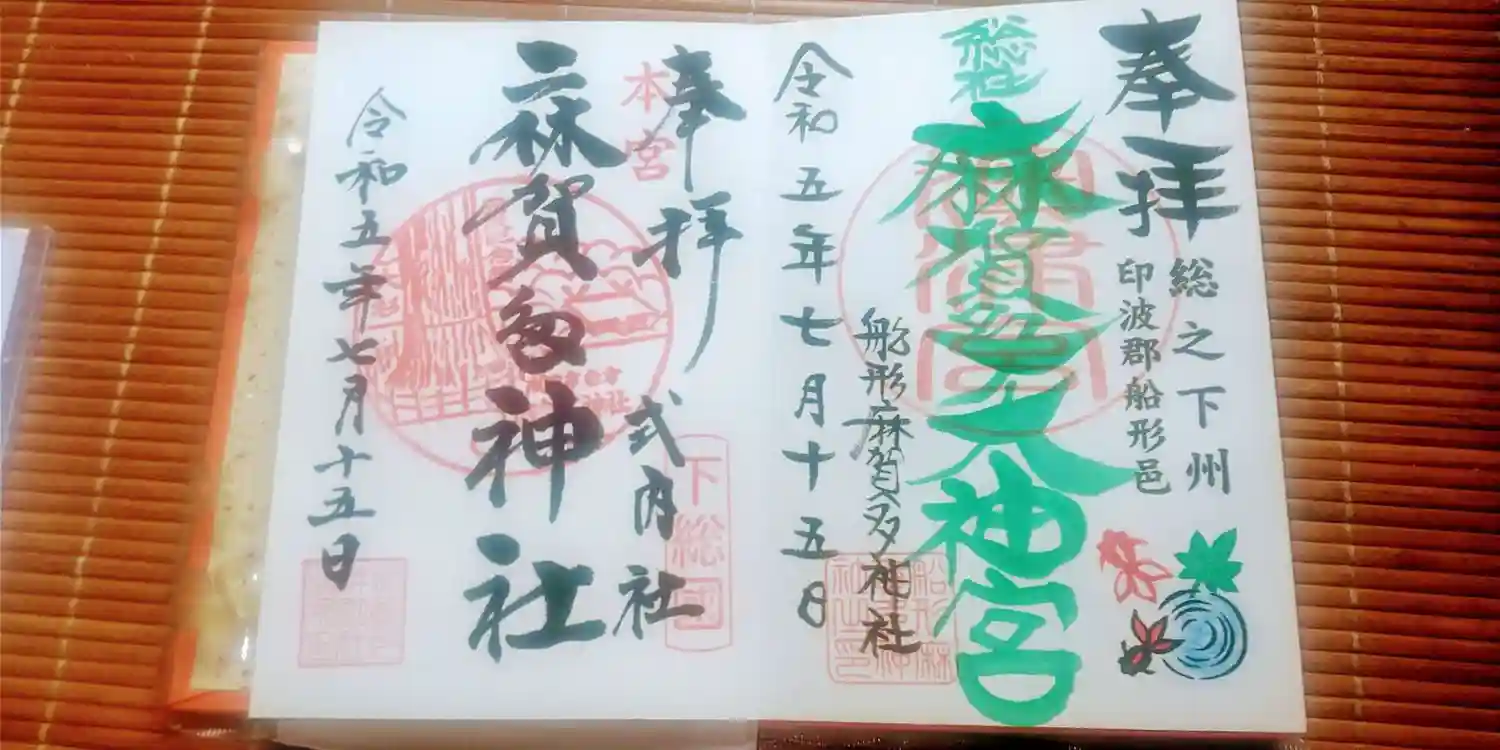 奉拝
総之下州
印波郡船形邑
総社
麻賀多大神宮
船形麻賀多神社
令和五年七月十五日
奉拝
本宮
式内社
下総国
麻賀多神社
令和五年七月十五日